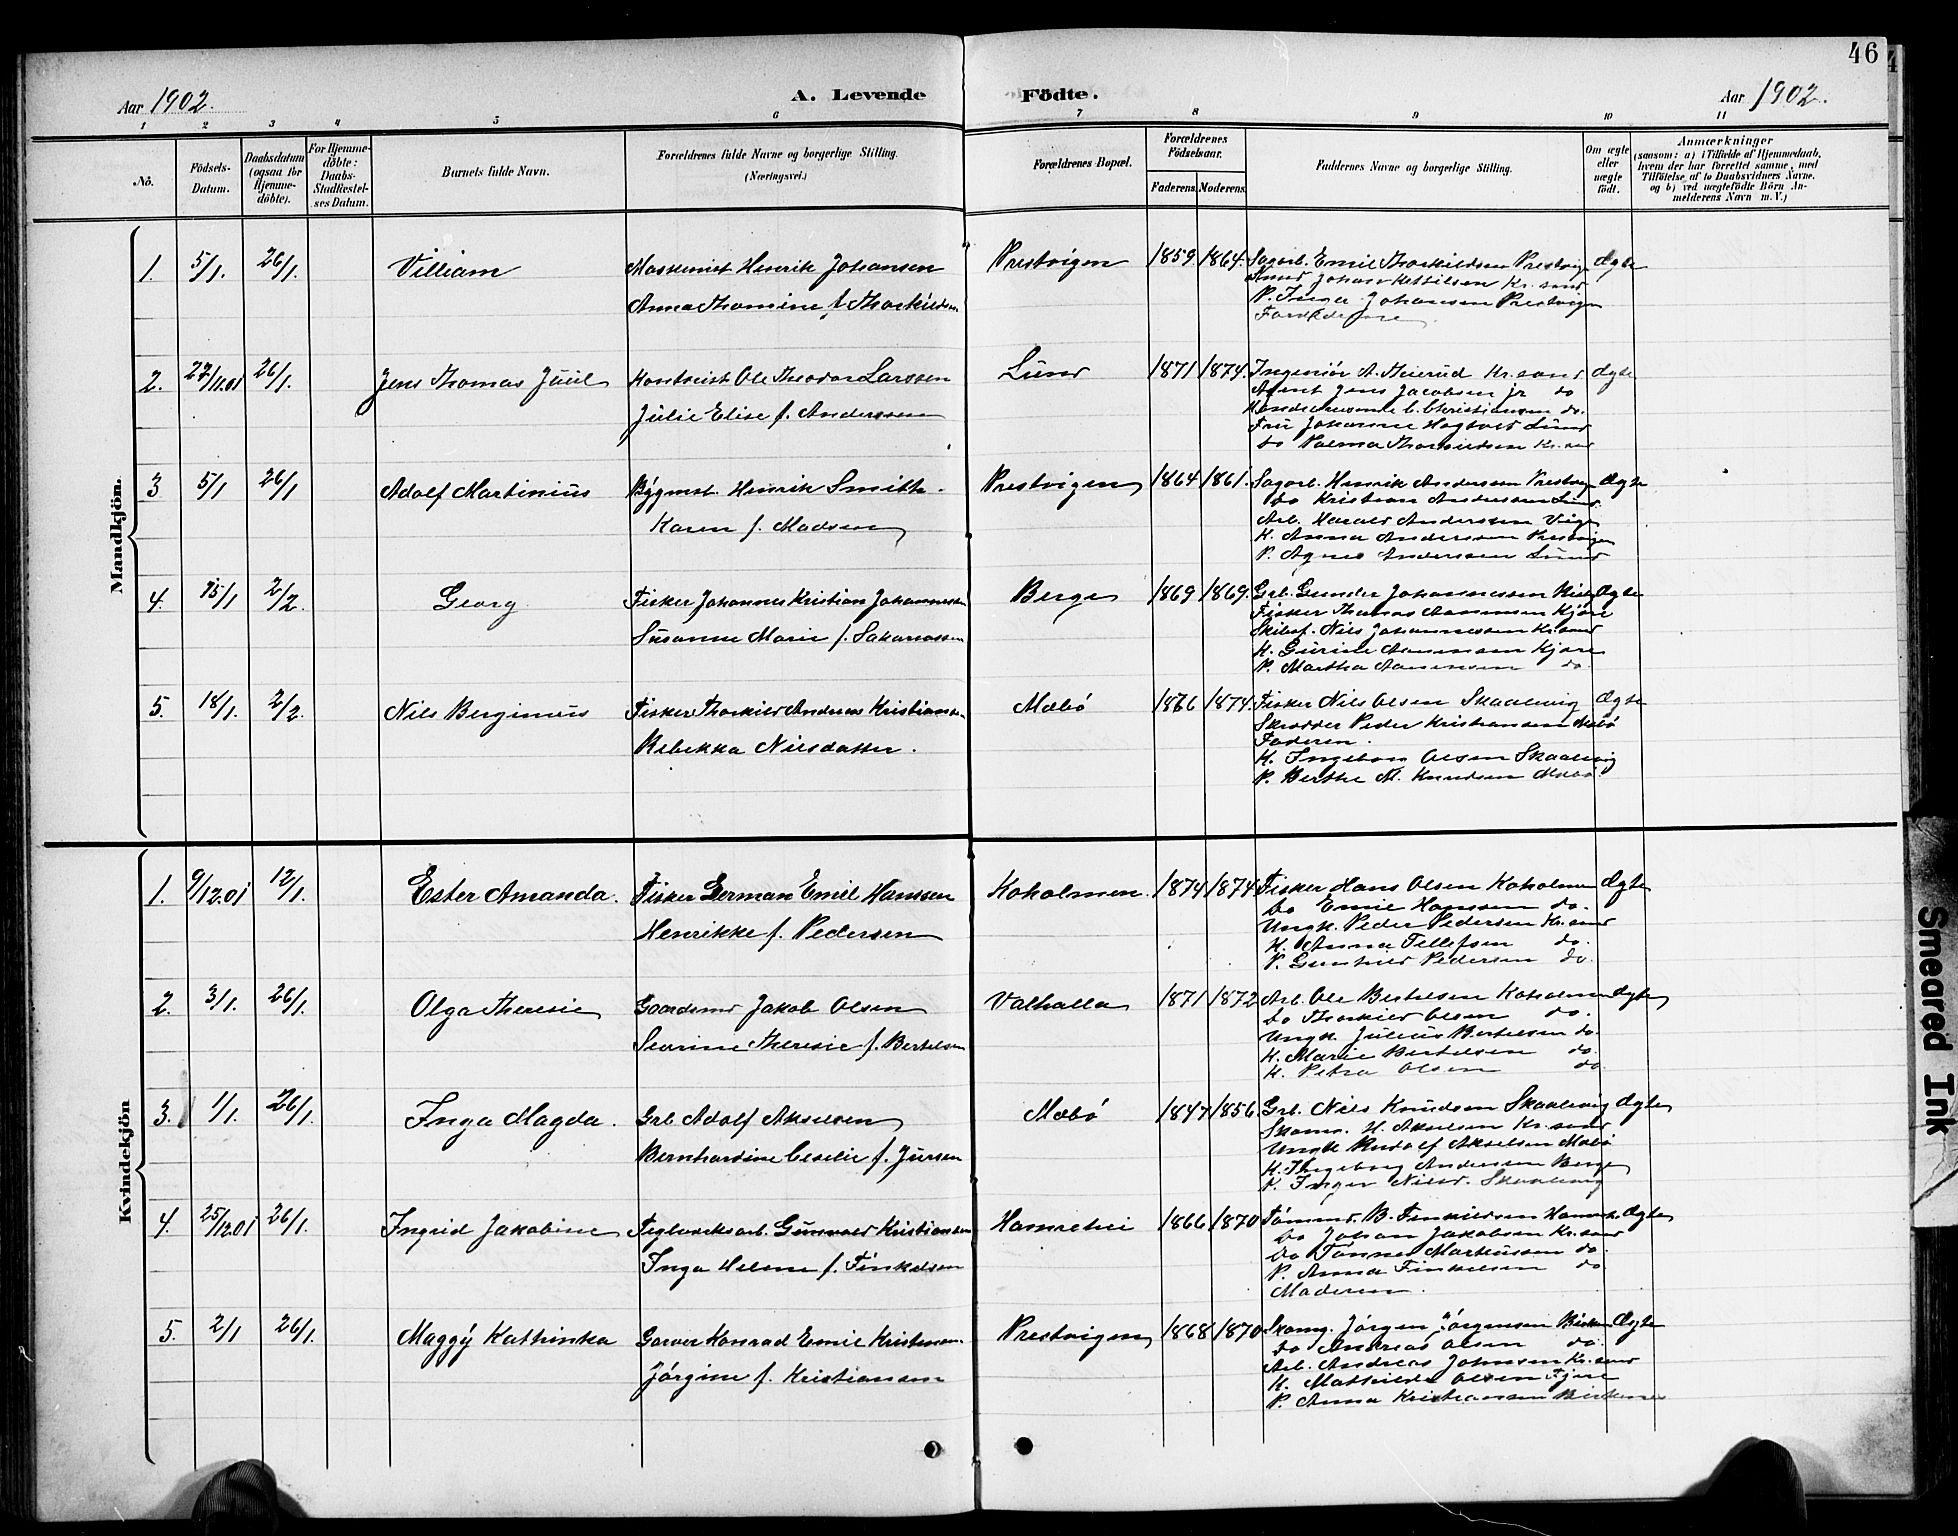 46
Aar 1902.
A. Levende Födte.
Aar 1902.
1 2 3 4 5 6 7 8 9 10 11
No.
Födsels-Datum.
Daabsdatum (ogsaa for Hjemme-döbte).
For Hjemme-döbte: Daabs-Stadfæstel-ses Datum.
Barnets fulde Navn.
Forældrenes fulde Navne og borgerlige Stilling. (Næringsvei.)
Forældrenes Bopæl.
Forældrenes Födselsaar.
Faderens. Moderens.
Faddernes Navne og borgerlige Stilling.
Om ægte eller uægte födt.
Anmærkninger
(saasom: a) i Tilfælde af Hjemmedaab, hvem der har forrettet samme, med Tilföielse af to Daabsvidners Navne, og b) ved uægtefödte Börn An-melderens Navn m. V.)
Mandkjön.
1. 5/1. 26/1. Villiam
Maskinist Henrik Johansen
Anna Thomine f. Thorkildsen
Prestvigen 1859. 1864.
Sagarb. Emil Thorkildsen Prestvig
Johan Kettilsen Kr.sand
P. Inga Johansen Prestvigen
Forældrene
Ægte
2. 27/11.01 26/1. Jens Thomas Juul
Kontorist Ole Theodor Larssen
Julie Elise f. Anderssen
Lund 1871 1874.
Ingeniör A. Heierud Kr.sand
Agent Jens Jacobsen jr do
C. Christiansen do.
Fru Johanne Hagbold Lund
do Palma Thorkildsen Kr.sand
Ægte
3 5/1 26/1 Adolf Martinius
Bygmst. Henrik Smith.
Karen f. Madsen
Prestvigen 1864 1861.
Sagarb. Henrik Andersen Prestvig
do Kristian Anderssen Lund
Arb. Harald Anderssen Vige
K. Anna Anderssen Prestvigen
P. Agnes Anderssen Lund
Ægte
4. 15/1 2/2. Georg
Fisker Johannes Kristian Johannessen
Susanne Marie f. Sakariassen
Berge 1869 1869.
Grb. Gunder Johannessen
Fisker Thomas Aamunsen Kjöre
Skibsf. Nils Johannessen Kr.sand
K. Gurine Aamunsen Kjöre
P. Martha Aamunsen do.
Ægte
5. 18/1. 2/2. Nils Berginius
Fisker Thorkild Andreas Kristiansen
Rebekka Nilsdatter.
Mæbö 1866 1874.
Fisker Nils Olsen Skaalevig
Skrædder Peder Kristiansen Mæbö
Faderen.
K. Ingebor Olsen Skaalevig
P. Berthe M. Knudsen Mæbö
Ægte
Kvindekjön
1. 9/12.01 12/1. Ester Amanda.
Fisker Herman Emil Hanssen
Henrikke f. Pedersen
Koholmen. 1874 1874.
Fisker Hans Olsen Koholmen
do Emil Hanssen do.
Ungk. Peder Pedersen Kr.sand
K. Anna Tellefsen do.
P. Gunhild Pedersen do.
Ægte
2. 3/1. 26/1. Olga Theresie
Gaardsmd Jakob Olsen
Severine Theresie f. Bertelsen
Valhalla 1871 1872
Arb. Ole Bertelsen Koholmen
do Thorkild Olsen do.
Ungk. Julius Bertelsen do.
K. Marie Bertelsen do.
K. Petra Olsen do.
Ægte
3. 1/1. 26/1. Inga Magda.
Grb Adolf Akselsen
Bernhardine Cecilie f. Jursen
Mæbö 1847 1856.
Grb. Nils Knudsen Skaalevig
Skom. H. Akselsen Kr.sand
Ungk Rudolf Akselsen Mæbö
K. Ingeborg Andersen Berge
K. Inger Nilsd. Skaalevig
Ægte
4. 25/12.01 26/1. Ingrid Jakobine
Teglverksarb. Gunvald Kristiansen
Inga Helene f. Finkelsen
Hamrehei 1866 1870
Tömmd. B. Finkildsen
do Johan Jakobsen Kr.sand
do Tönnes Markussen do.
P. Anna Finkelsen do
Moderen.
Ægte
5. 2/1 26/1. Maggy Kathinka
Garver Konrad Emil Kristensen
Jörgine f. Kristiansen
Prestvigen 1868 1870
Skomg. Jörgen Jörgensen
do Andreas Olsen do.
Arb. Andreas Johnsen Kr.sand
K. Mathilde Olsen
P. Anna Kristiansen
Ægte
Smeared Ink